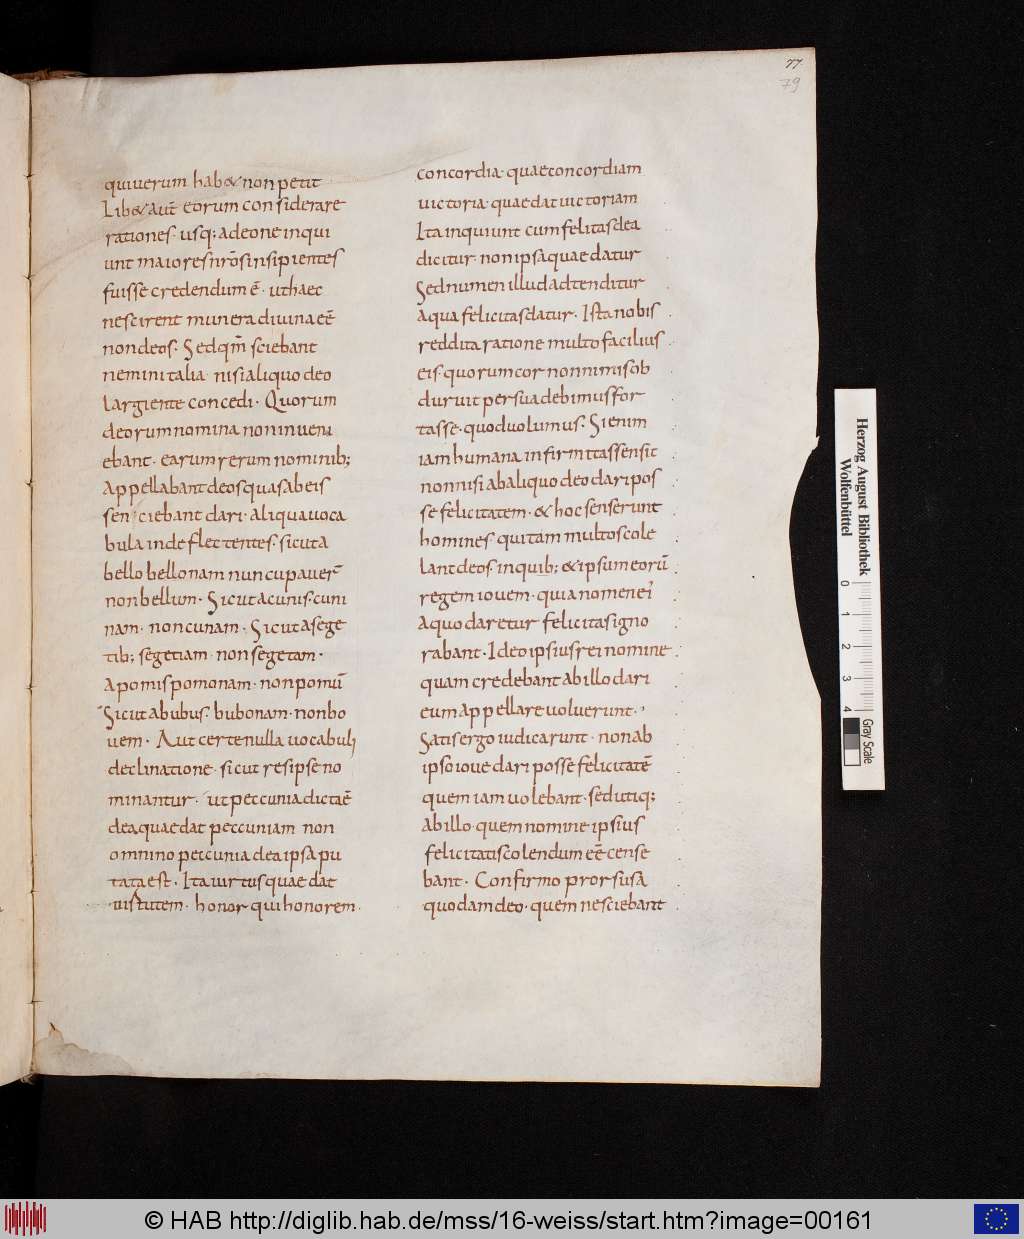 77
79
qui uerum hab& non petit
Lib& aut̄ eorum considerare
rationes· usq; adeone inqui
unt maiores nr̄os insipientes
fuisse credendum ē· ut haec
nescirent munera diuina eē
non deos· Sed qm̄ sciebant
nemini talia· nisi aliquo deo
largiente concedi· Quorum
deorum nomina non inueni
ebant· earum rerum nominib;
Appellabant deos quas ab eis
sen ciebant dari· aliqua uoca
bula inde flectentes· sicut a
bello bellonam nuncupauer̄
non bellum· Sicut a cunis· cuni
nam· non cunam· Sicut a sege
tib; segetiam· non segetam·
A pomis pomonam· non pomū
Sicut a bubus· bubonam· non bo
uem· Aut certe nulla uocabuli
declinatione· sicut res ipse no
minantur· ut peccunia dicta ē
dea, quae dat peccuniam non
omnino peccunia dea ipsa pu
tata est· Ita uirtus quae dat
uistutem· honor qui honorem·
concordia· quae concordiam
uictoria· quae dat uictoriam
Ita inquiunt cum felitas dea
dicitur· non ipsa quae datur
Sed numen illud adtenditur
a qua felicitas datur· Ista nobis
reddita ratione multo facilius
eis· quorum cor non nimis ob
duruit persuadebimus for
tasse· quod uolumus· Si enim
iam humana infirmitas sensit
non nisi ab aliquo deo dari pos
se felicitatem· & hoc senserunt
homines· qui tam multos cole
lant deos· in quib; & ipsum eorū
regem iouem· quia nomen ei'
A quo daretur felicitas igno
rabant· Ideo ipsius rei nomine
quam credebant ab illo dari
eum appellare uoluerunt·
Satis ergo iudicarunt· non ab
ipso ioue dari posse felicitatē
quem iam uolebant· sed utiq;
ab illo· quem nomine ipsius
felicitatis colendum eē cense
bant· Confirmo prorsus a
quodam deo· quem nesciebant
Herzog August Bibliothek
Wolfenbüttel
0 1 2 3 4
Gray Scale
© HAB http://diglib.hab.de/mss/16-weiss/start.htm?image=00161